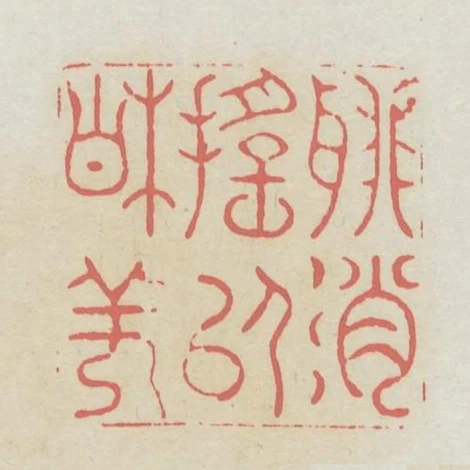 聊消
搖以
相羊